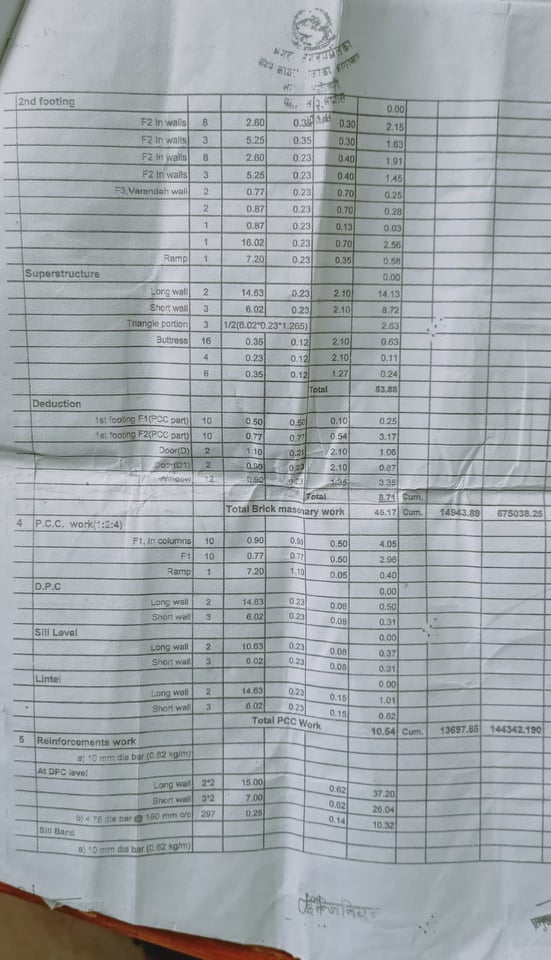 2nd footing 0.00
F2 In walls 8 2.60 0.35 0.30 2.15
F2 In walls 3 5.25 0.35 0.30 1.63
F2 In walls 8 2.60 0.23 0.40 1.91
F2 In walls 3 5.25 0.23 0.40 1.45
F3,Varandah wall 2 0.77 0.23 0.70 0.25
2 0.87 0.23 0.70 0.28
1 0.87 0.23 0.13 0.03
1 16.02 0.23 0.70 2.56
Ramp 1 7.20 0.23 0.35 0.58
Superstructure 0.00
Long wall 2 14.63 0.23 2.10 14.13
Short wall 3 6.02 0.23 2.10 8.72
Triangle portion 3 1/2(6.02*0.23*1.265) 2.63
Buttress 16 0.35 0.12 2.10 0.63
4 0.23 0.12 2.10 0.11
6 0.35 0.12 1.27 0.24
Total 53.88
Deduction
1st footing F1(PCC part) 10 0.50 0.50 0.10 0.25
1st footing F2(PCC part) 10 0.77 0.77 0.54 3.17
Door(D) 2 1.10 0.23 2.10 1.06
Door(D1) 2 0.90 0.23 2.10 0.87
Window 12 0.90 0.23 1.35 3.35
Total 8.71 Cum.
Total Brick masonary work 45.17 Cum. 14943.89 675038.25
4 P.C.C. work(1:2:4)
F1, In columns 10 0.90 0.90 0.50 4.05
F1 10 0.77 0.77 0.50 2.96
Ramp 1 7.20 1.10 0.05 0.40
D.P.C 0.00
Long wall 2 14.63 0.23 0.08 0.50
Short wall 3 6.02 0.23 0.08 0.31
Sill Level 0.00
Long wall 2 10.63 0.23 0.08 0.37
Short wall 3 6.02 0.23 0.08 0.31
Lintel 0.00
Long wall 2 14.63 0.23 0.15 1.01
Short wall 3 6.02 0.23 0.15 0.62
Total PCC Work 10.54 Cum. 13697.85 144342.190
5 Reinforcements work
a) 10 mm dia bar (0.62 kg/m)
At DPC level
Long wall 2*2 15.00 0.62 37.20
Short wall 3*2 7.00 0.62 26.04
b) 4.75 dia bar @ 150 mm c/c 297 0.25 0.14 10.32
Sill Band
a) 10 mm dia bar (0.62 kg/m)
ईन्जिनियर